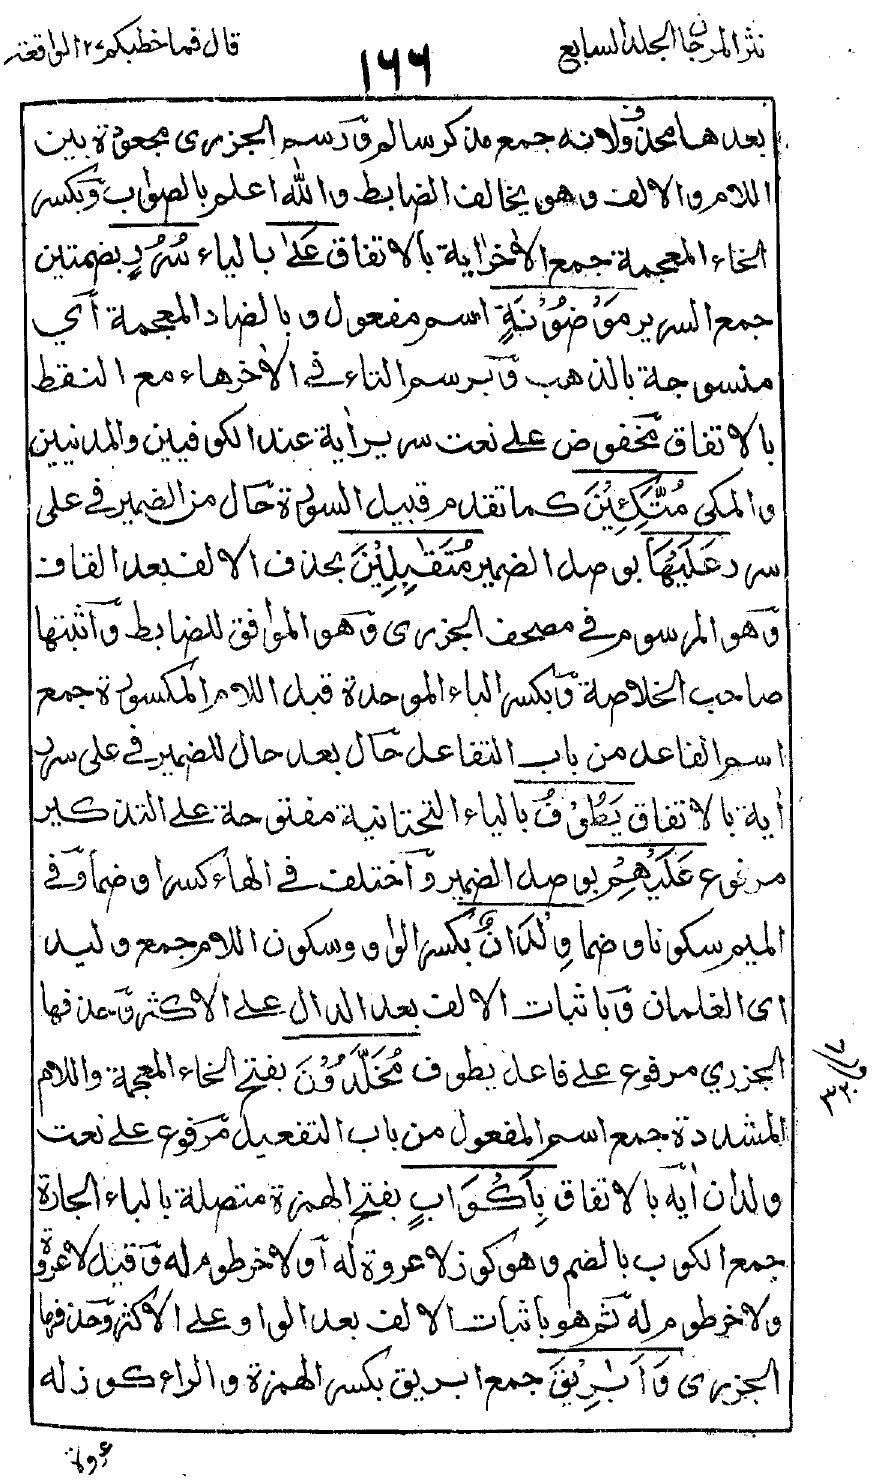 نثر المرجان الجلد السابع
١٦٦
قال فما خطبكم ٢٧ الواقعة
بعدها محذوف ولانه جمع مذكر سالم وَرسم الجزرى مجعودة بين
اللام والالف وهو يخالف الضابط والله اعلم بالصواب وَبكسر
الخاء المعجمة جمع الاٰخر اية بالاتفاق عَلىٰ بالياء سُرُرٍ بضمتين
جمع السرير مَوْضُوْنَةٍ اسم مفعول وبالضاد المعجمة اَي
منسوجة بالذهب وَبرسم التاء في الاٰخر هاء مع النقط
بالاتفاق مخفوض على نعت سرير اٰية عند الكوفيين والمدنيين
والمكي مُتَّكِئِيْنَ كما تقدم قبيل السورة حَال من الضمير في على
سرر عَلَيْهَا بوصل الضمير مُتَقٰبِلِيْنَ بحذف الالف بعد القاف
وَهو المرسوم في مصحف الجزرى وَهو الموافق للضابط وَاثبتها
صاحب الخلاصة وَبكسر الباء الموحدة قبل اللام المكسورة جمع
اسم الفاعل من باب التفاعل حَال بعد حال للضمير في على سرر
اٰية بالاتفاق يَطُوْفُ بالياء التحتانية مفتوحة على التذكير
مرفوع عَلَيْهِمْ بوصل الضمير وَاختلف في الهاء كسرا وضما وَفي
الميم سكونا وضما وِلْدَانٌ بكسر الواو وسكون اللام جمع وليد
اى الغلمان وَباثبات الالف بعد الدال على الاكثر وَحذفها
الجزري مرفوع على فاعل يطوف مُخَلَّدُوْنَ بفتح الخاء المعجمة واللام
المشددة جمع اسم المفعول من باب التفعيل مَرفوع على نعت
ولدان اٰية بالاتفاق بِاَكْوَابٍ بفتح الهمزة متصلة بالباء الجارة
جمع الكوب بالضم وهو كوز لا عروة له اَو لا خرطوم له وَقيل لا عروة
ولا خرطوم له ثم هو باثبات الالف بعد الواو على الاكثر وَحذفها
الجزرى وَاَبَارِيْقَ جمع ابريق بكسر الهمزة والراء كوز له
عروة